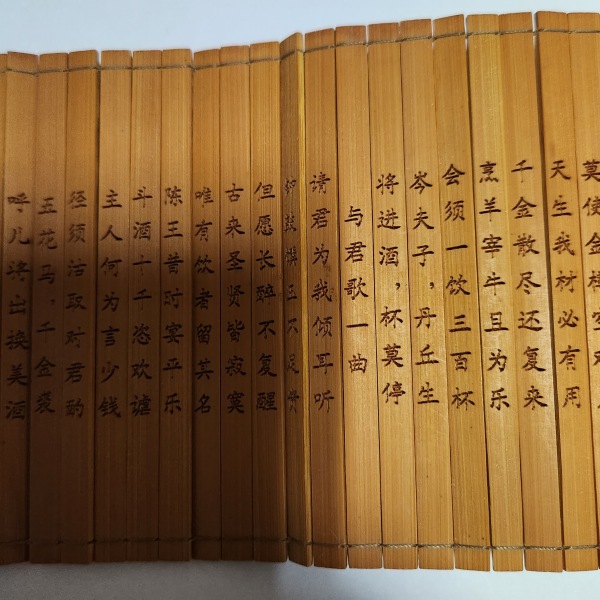 莫使金樽空对
天生我材必有用
千金散尽还复来
烹羊宰牛且为乐
会须一饮三百杯
岑夫子,丹丘生
将进酒,杯莫停
与君歌一曲
请君为我倾耳听
钟鼓馔玉不足贵
但愿长醉不复醒
古来圣贤皆寂寞
唯有饮者留其名
陈王昔时宴平乐
斗酒十千恣欢谑
主人何为言少钱
径须沽取对君酌
五花马,千金裘
呼儿将出换美酒